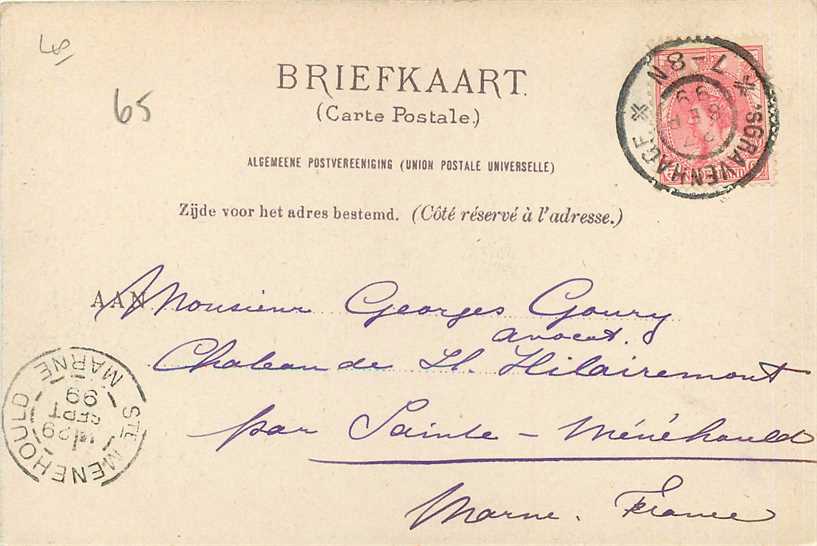 48
65
BRIEFKAART.
(Carte Postale.)
ALGEMEENE POSTVEREENIGING (UNION POSTALE UNIVERSELLE)
Zijde voor het adres bestemd. (Côté réservé à l'adresse.)
'SGRAVENHAGE
7-8N
27
SEP
99
AAN Monsieur Georges Goury
avocat.
Chateau de St. Hilairemont
par Sainte-Ménéhould
Marne. France
STE MENEHOULD
MARNE
29
SEPT
99